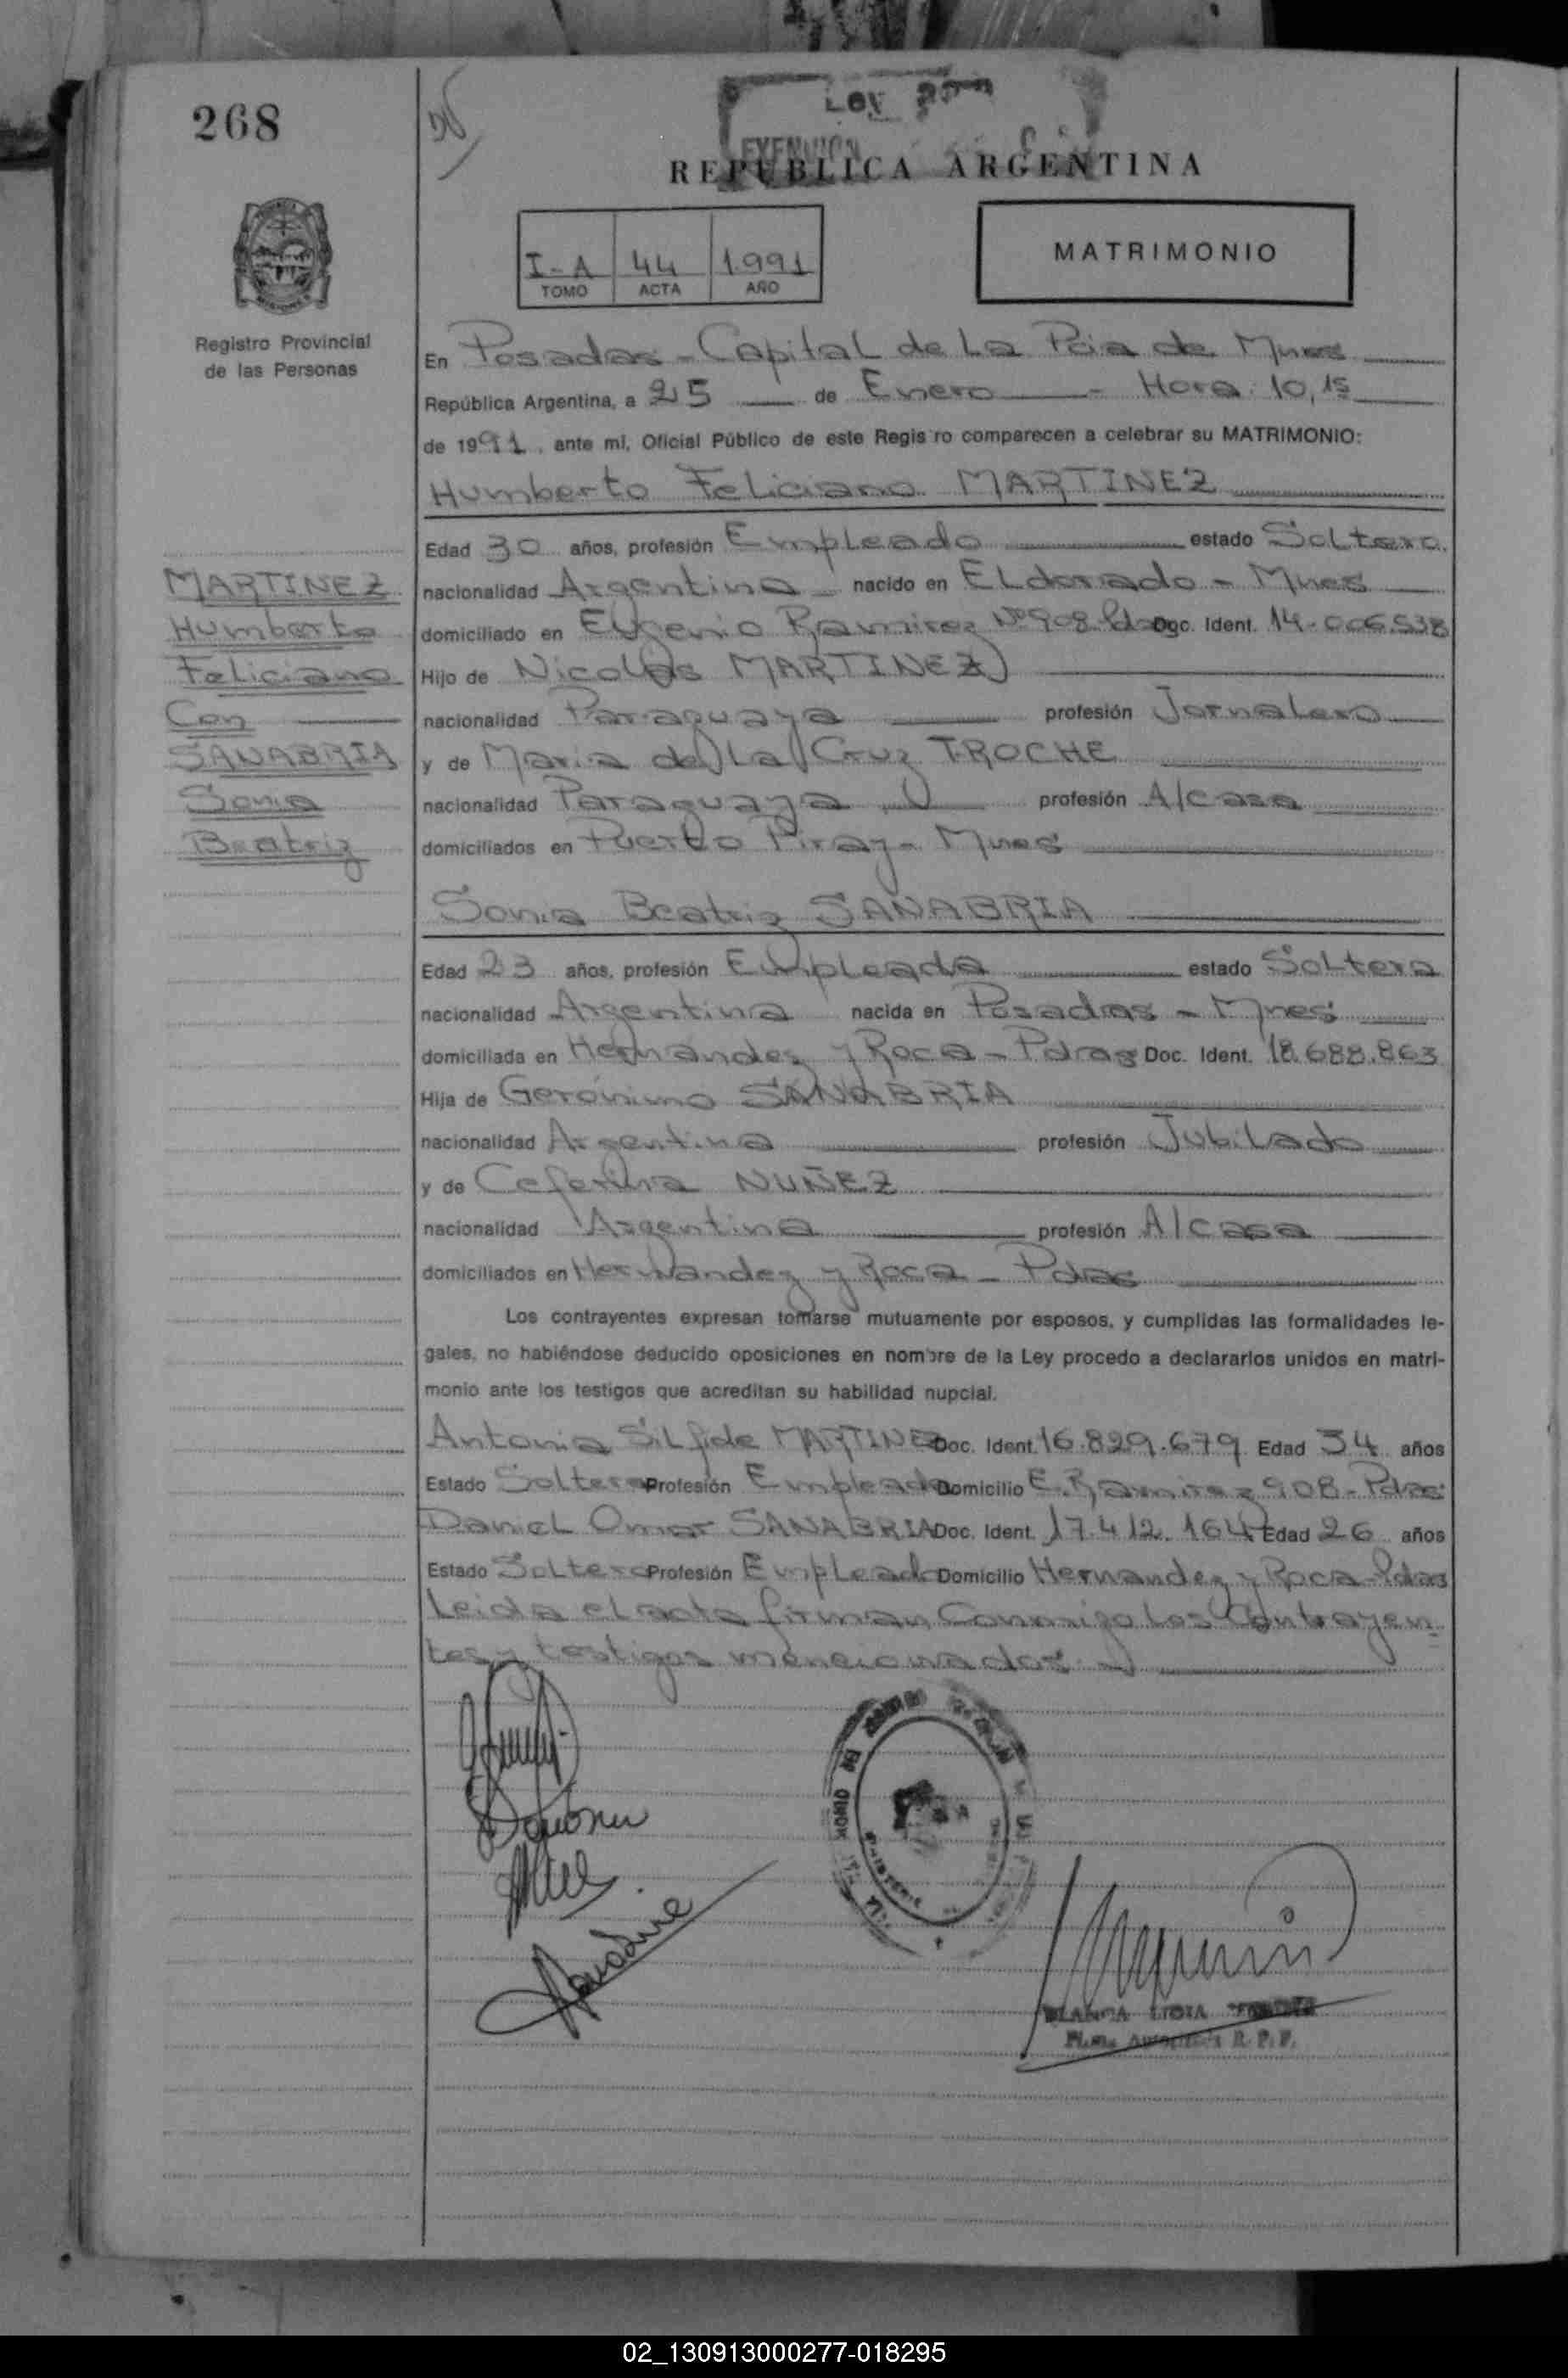 268
Ley
EXENCION
REPUBLICA ARGENTINA
I-A 44 1.991
TOMO ACTA AÑO
MATRIMONIO
Registro Provincial
de las Personas
En Posadas - Capital de La Pcia de Mnes
República Argentina, a 25 de Enero - Hora: 10,15
de 1991, ante mi, Oficial Público de este Regis ro comparecen a celebrar su MATRIMONIO:
Humberto Feliciano MARTINEZ
Edad 30 años, profesión Empleado estado Soltero
nacionalidad Argentina nacido en ELdorado - Mnes
domiciliado en Eugenio Ramirez Nº 908. Pdas Doc. Ident. 14.006.538
Hijo de Nicolas MARTINEZ
nacionalidad Paraguaya profesión Jornalero
y de Maria de La Cruz TROCHE
nacionalidad Paraguaya profesión A/casa
domiciliados en Puerto Piray - Mnes
MARTINEZ
Humberto
Feliciano
Con
SANABRIA
Sonia
Beatriz
Sonia Beatriz SANABRIA
Edad 23 años, profesión Empleada estado Soltera
nacionalidad Argentina nacida en Posadas - Mnes
domiciliada en Hernandez y Roca - Pdas Doc. Ident. 18.688.863
Hija de Gerónimo SANABRIA
nacionalidad Argentina profesión Jubilado
y de Ceferina NUÑEZ
nacionalidad Argentina profesión A/casa
domiciliados en Hernandez y Roca - Pdas
Los contrayentes expresan tomarse mutuamente por esposos, y cumplidas las formalidades le-
gales, no habiéndose deducido oposiciones en nombre de la Ley procedo a declararlos unidos en matri-
monio ante los testigos que acreditan su habilidad nupcial.
Antonia Silfide MARTINEZ Doc. Ident. 16.829.679 Edad 34 años
Estado Soltera Profesión Empleada Domicilio E. Ramirez 908 - Pdas
Daniel Omar SANABRIA Doc. Ident. 17.412.164 Edad 26 años
Estado Soltero Profesión Empleado Domicilio Hernandez y Roca - Pdas
Leida el acta firman Conmigo Los Contrayen=
tes y testigos mencionados.
BLANCA LIDIA
R. P. P.
02_130913000277-018295